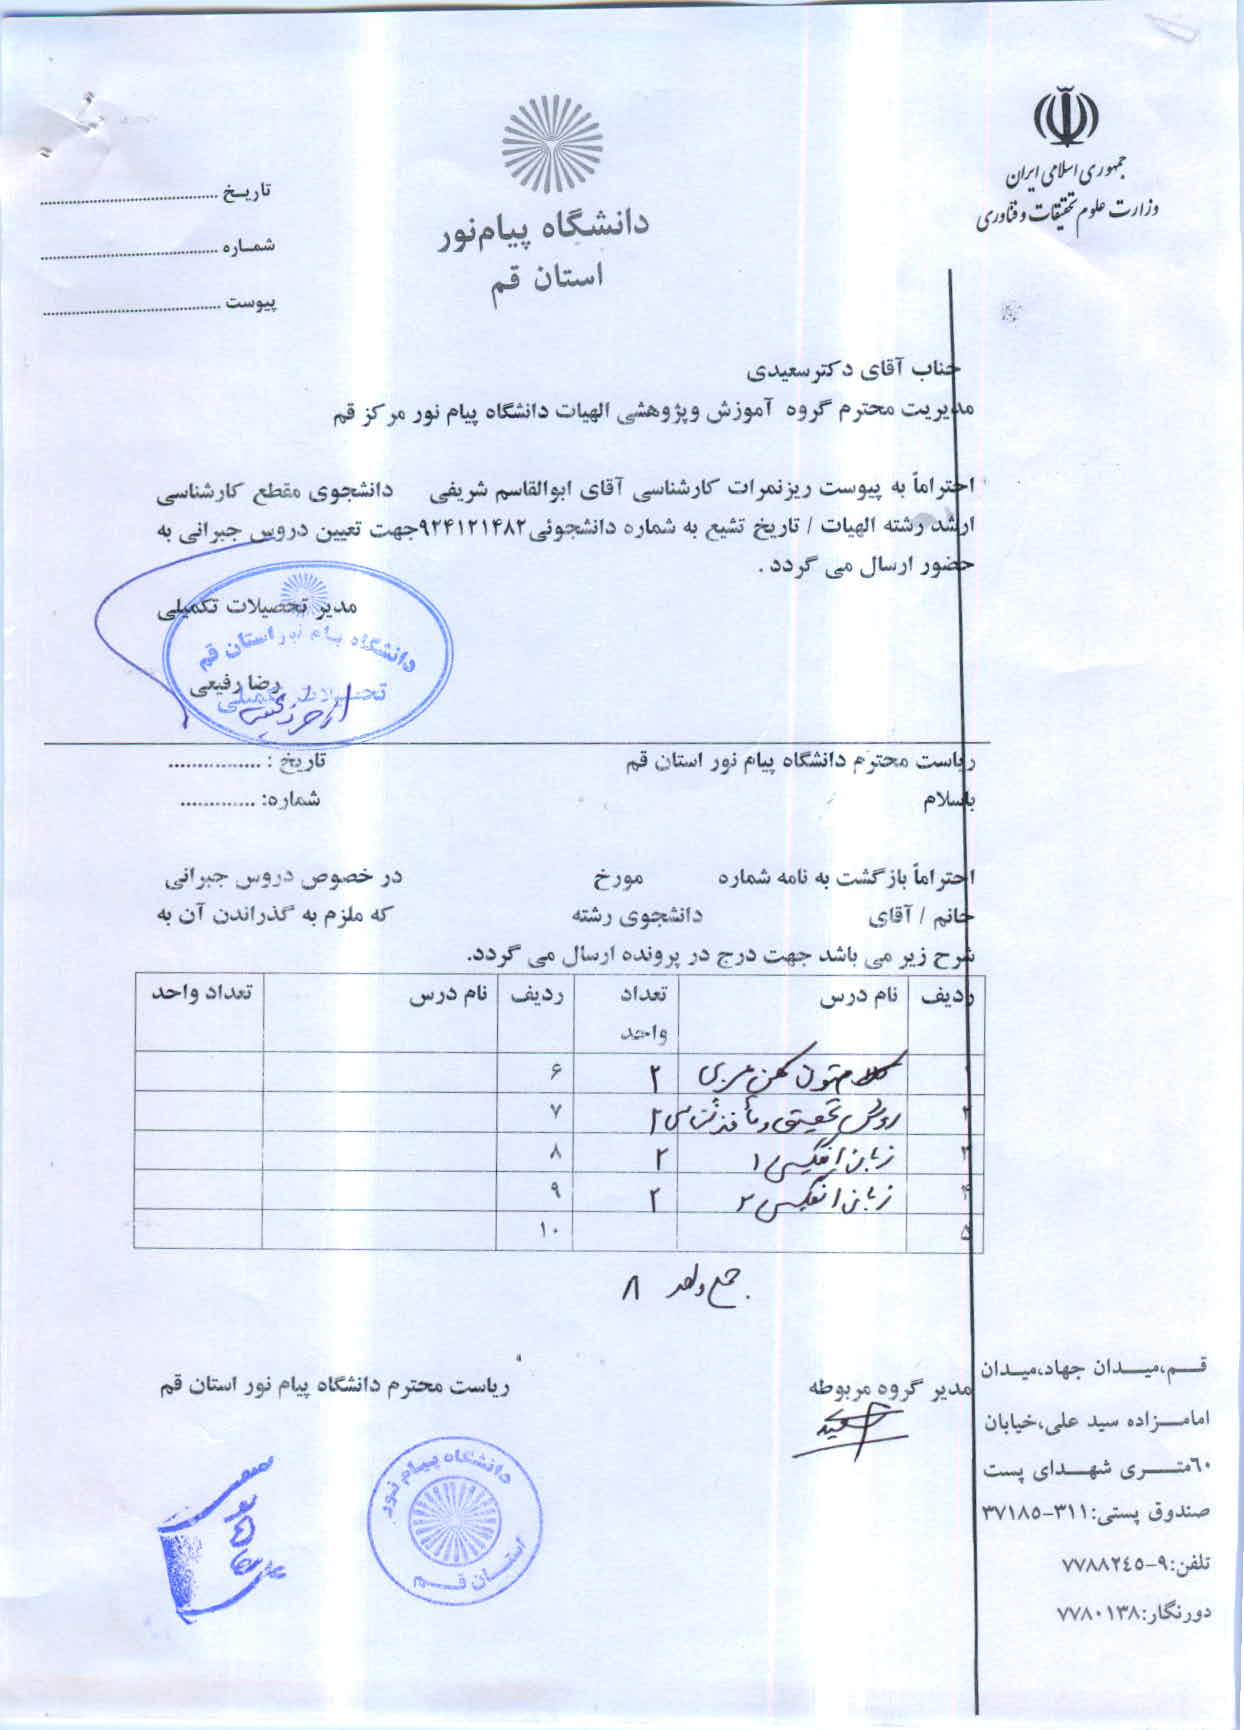 جمهوری اسلامی ایران
وزارت علوم تحقیقات و فناوری
دانشگاه پیام‌نور
استان قم
تاریـخ ........................
شمـاره ........................
پیوست ........................
جناب آقای دکترسعیدی
مدیریت محترم گروه آموزش وپژوهشی الهیات دانشگاه پیام نور مرکز قم
احتراماً به پیوست ریزنمرات کارشناسی آقای ابوالقاسم شریفی دانشجوی مقطع کارشناسی
ارشد رشته الهیات / تاریخ تشیع به شماره دانشجوئی۹۲۴۱۲۱۴۸۲جهت تعیین دروس جبرانی به
حضور ارسال می گردد .
مدیر تحصیلات تکمیلی
دانشگاه پیام نور استان قم
رضا رفیعی
تحصیلات تکمیلی
ریاست محترم دانشگاه پیام نور استان قم تاریخ : ...............
باسلام شماره: .............
احتراماً بازگشت به نامه شماره مورخ در خصوص دروس جبرانی
خانم / آقای دانشجوی رشته که ملزم به گذراندن آن به
شرح زیر می باشد جهت درج در پرونده ارسال می گردد.
ردیف نام درس تعداد واحد ردیف نام درس تعداد واحد
۱ متون کهن عربی ۲ ۶
۲ روش تحقیق و مأخذشناسی ۲ ۷
۳ زبان انگلیسی ۱ ۲ ۸
۴ زبان انگلیسی ۲ ۲ ۹
۵ ۱۰
جمع واحد ۸
مدیر گروه مربوطه ریاست محترم دانشگاه پیام نور استان قم
دانشگاه پیام نور
استـان قـــم
قـــم،میـــدان جهاد،میـدان
امامـــزاده سید علی،خیابان
٦٠متـــری شهـــدای پست
صندوق پستی:۳۱۱-۳۷۱۸۵
تلفن:۹-۷۷۸۸۲٤٥
دورنگار:۷۷۸۰۱۳۸